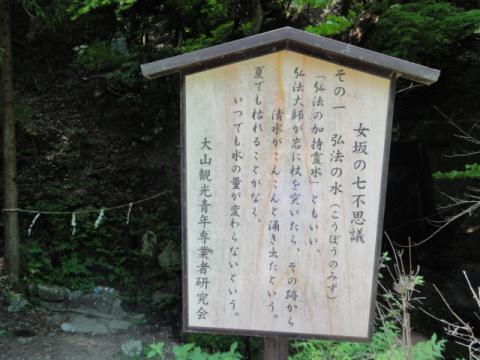 女坂の七不思議
その一 弘法の水（こうぼうのみず）
「弘法の加持霊水」ともいい、
弘法大師が岩に杖を突いたら、その跡から
清水がこんこんと涌き出たという。
夏でも枯れることがなく、
いつでも水の量が変わらないという。
大山観光青年専業者研究会